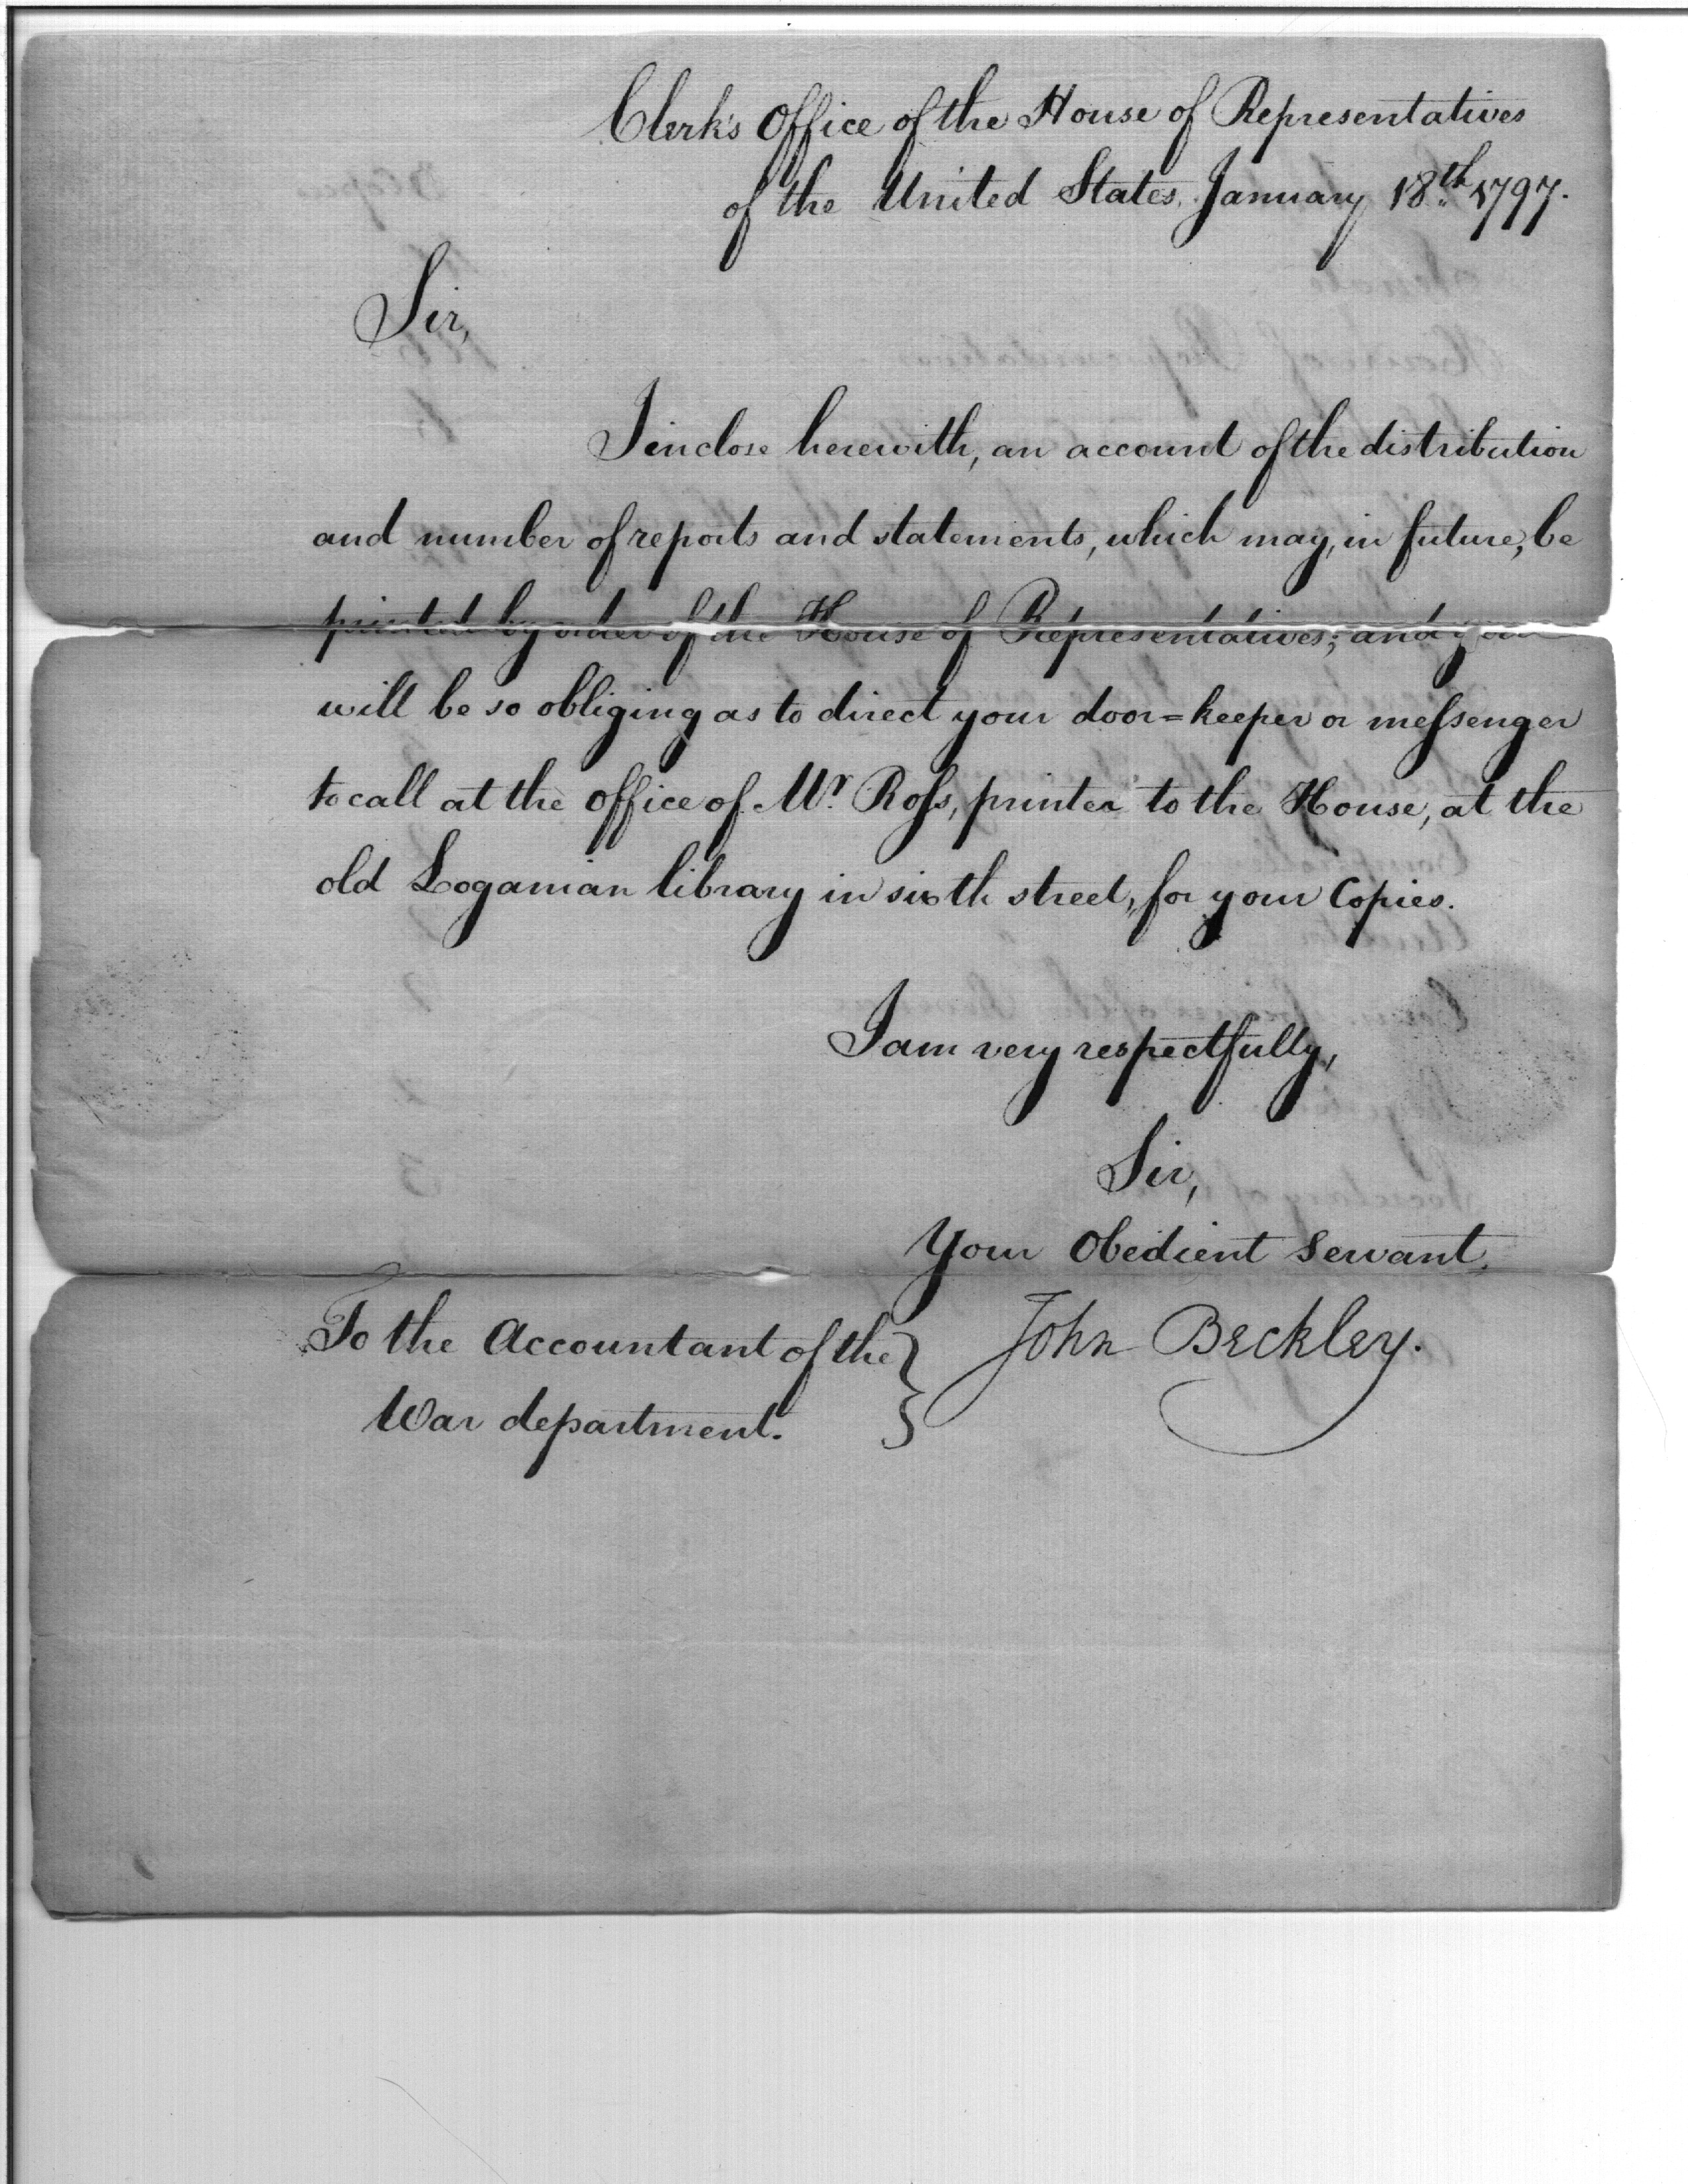 Clerk's Office of the House of Representatives
of the United States, January 18.th 1797.
Sir,
I inclose herewith, an account of the distribution
and number of reports and statements, which may, in future, be
printed by order of the House of Representatives; and you
will be so obliging as to direct your door=keeper or meſsenger
to call at the office of Mr. Roſs, printer to the House, at the
old Loganian library in sixth street, for your Copies.
I am very respectfully,
Sir,
Your Obedient Servant,
John Beckley.
To the Accountant of the
War department.